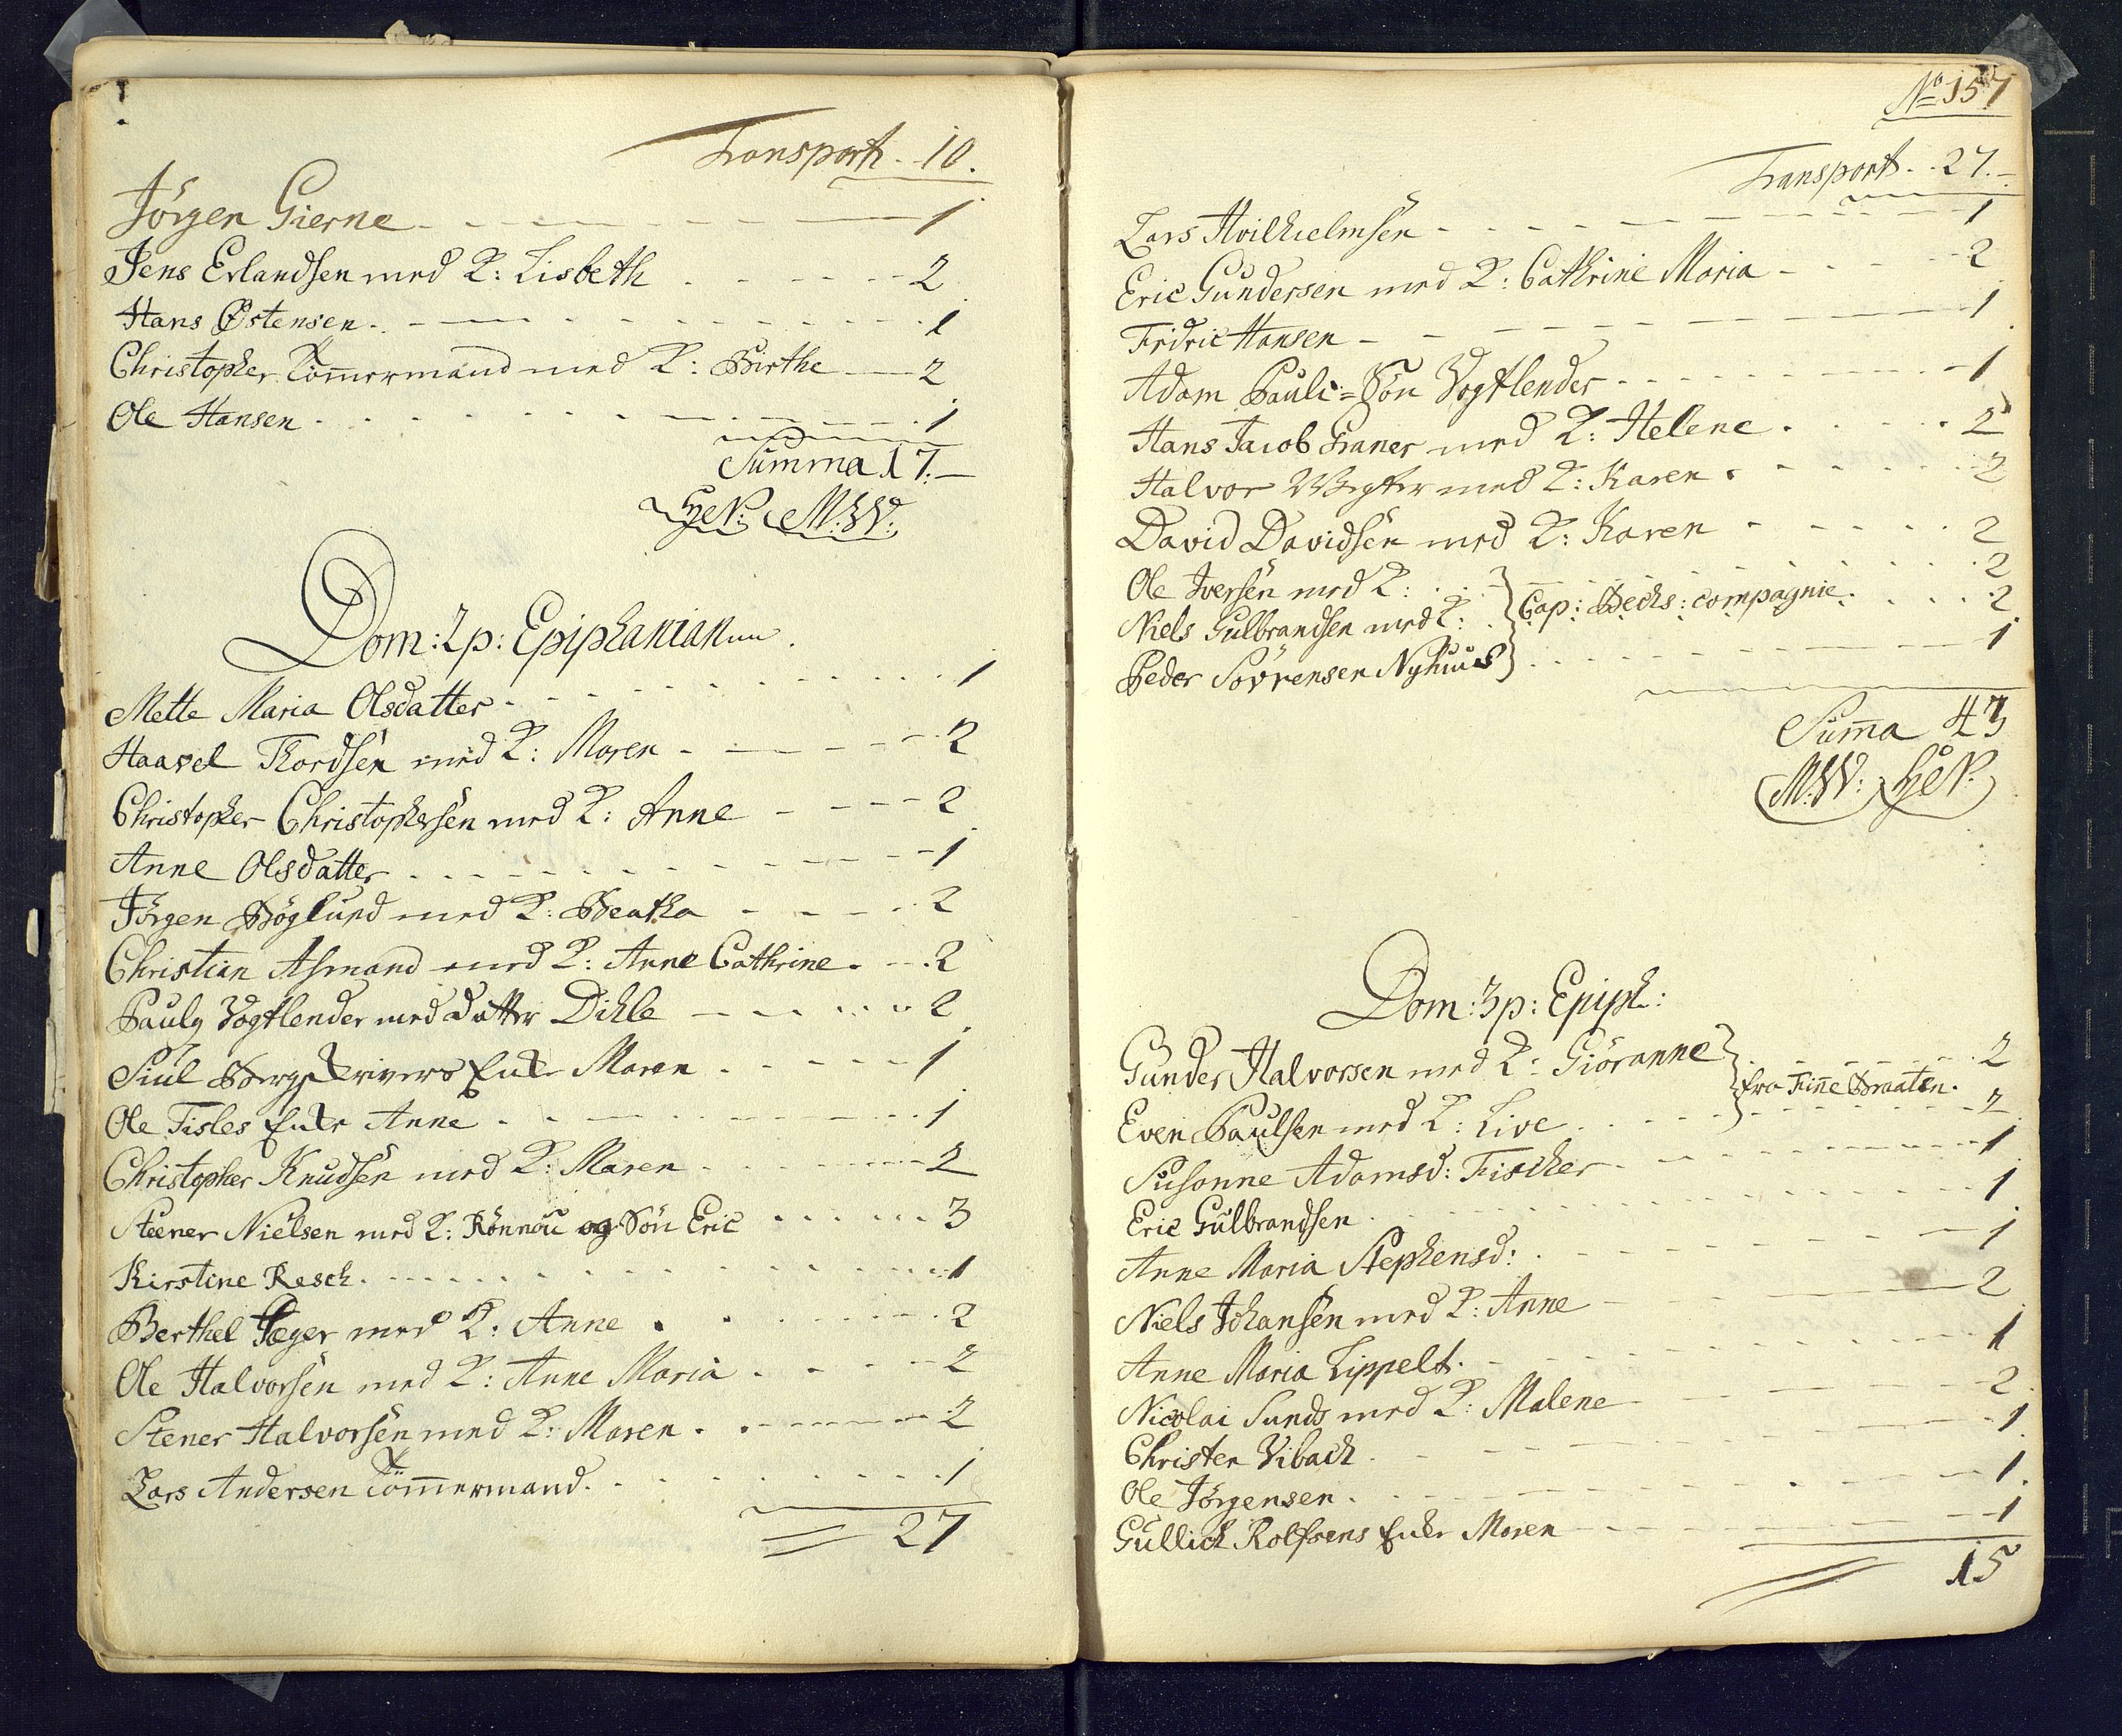 Transport - 10.
Jörgen Gierne - 1
Jens Erlandsen med K: Lisbeth - 2
Hans Östensen - 1
Christopher Tömermand med K: Birthe - 2
Ole Hansen - 1
Summa 17.
M:W:
Dom: 2 p: Epiphanian
Mette Maria Olsdatter - 1
Haavel Thordsen med K: Maren - 2
Christopher Christophersen med K: Anne - 2
Anne Olsdatter - 1
Jörgen Böglund med K: Beatha - 2
Christian Asmand med K: Anne Cathrine - 2
Pauly Vogtlender med datter Dihle - 2
Siul Bergskrivers Enke Maren - 1
Ole Tisles Enke Anne - 1
Christopher Knudsen med K: Maren - 2
Steener Nielsen med K: Rönnau og Sön Eric - 3
Kirstine Resch - 1
Berthel Jæger med K: Anne - 2
Ole Halvorsen med K: Anne Maria - 2
Stener Halvorsen med K: Maren - 2
Lars Andersen Tömermand - 1
27
No 157
Transport - 27.
Lars Hvilhielmsen - 1
Eric Gundersen med K: Cathrine Maria - 2
Fridric Hansen - 1
Adam Pauli=Sön Vogtlender - 1
Hans Jacob Graner med K: Helene - 2
Halvor Wegter med K: Karen - 2
David Davidsen med K: Karen - 2
Ole Iversen med K: - 2
Niels Gulbrandsen med K: } Cap: Becks: compagnie - 2
Peder Sörrensen Nyhuus - 1
Suma 43
M:W:
Dom: 3 p: Epiph:
Gunder Halvorsen med K: Giöranne - 2
} fra Fine Braaten.
Even Paulsen med K: Live - 2
Susanne Adamsd: Fischer - 1
Eric Gulbrandsen - 1
Anne Maria Stephensd: - 1
Niels Johansen med K: Anne - 2
Anne Maria Lippelt - 1
Nicolai Sunds med K: Malene - 2
Christen Vibach - 1
Ole Jörgensen - 1
Gullich Rolfsens Enke Maren - 1
15